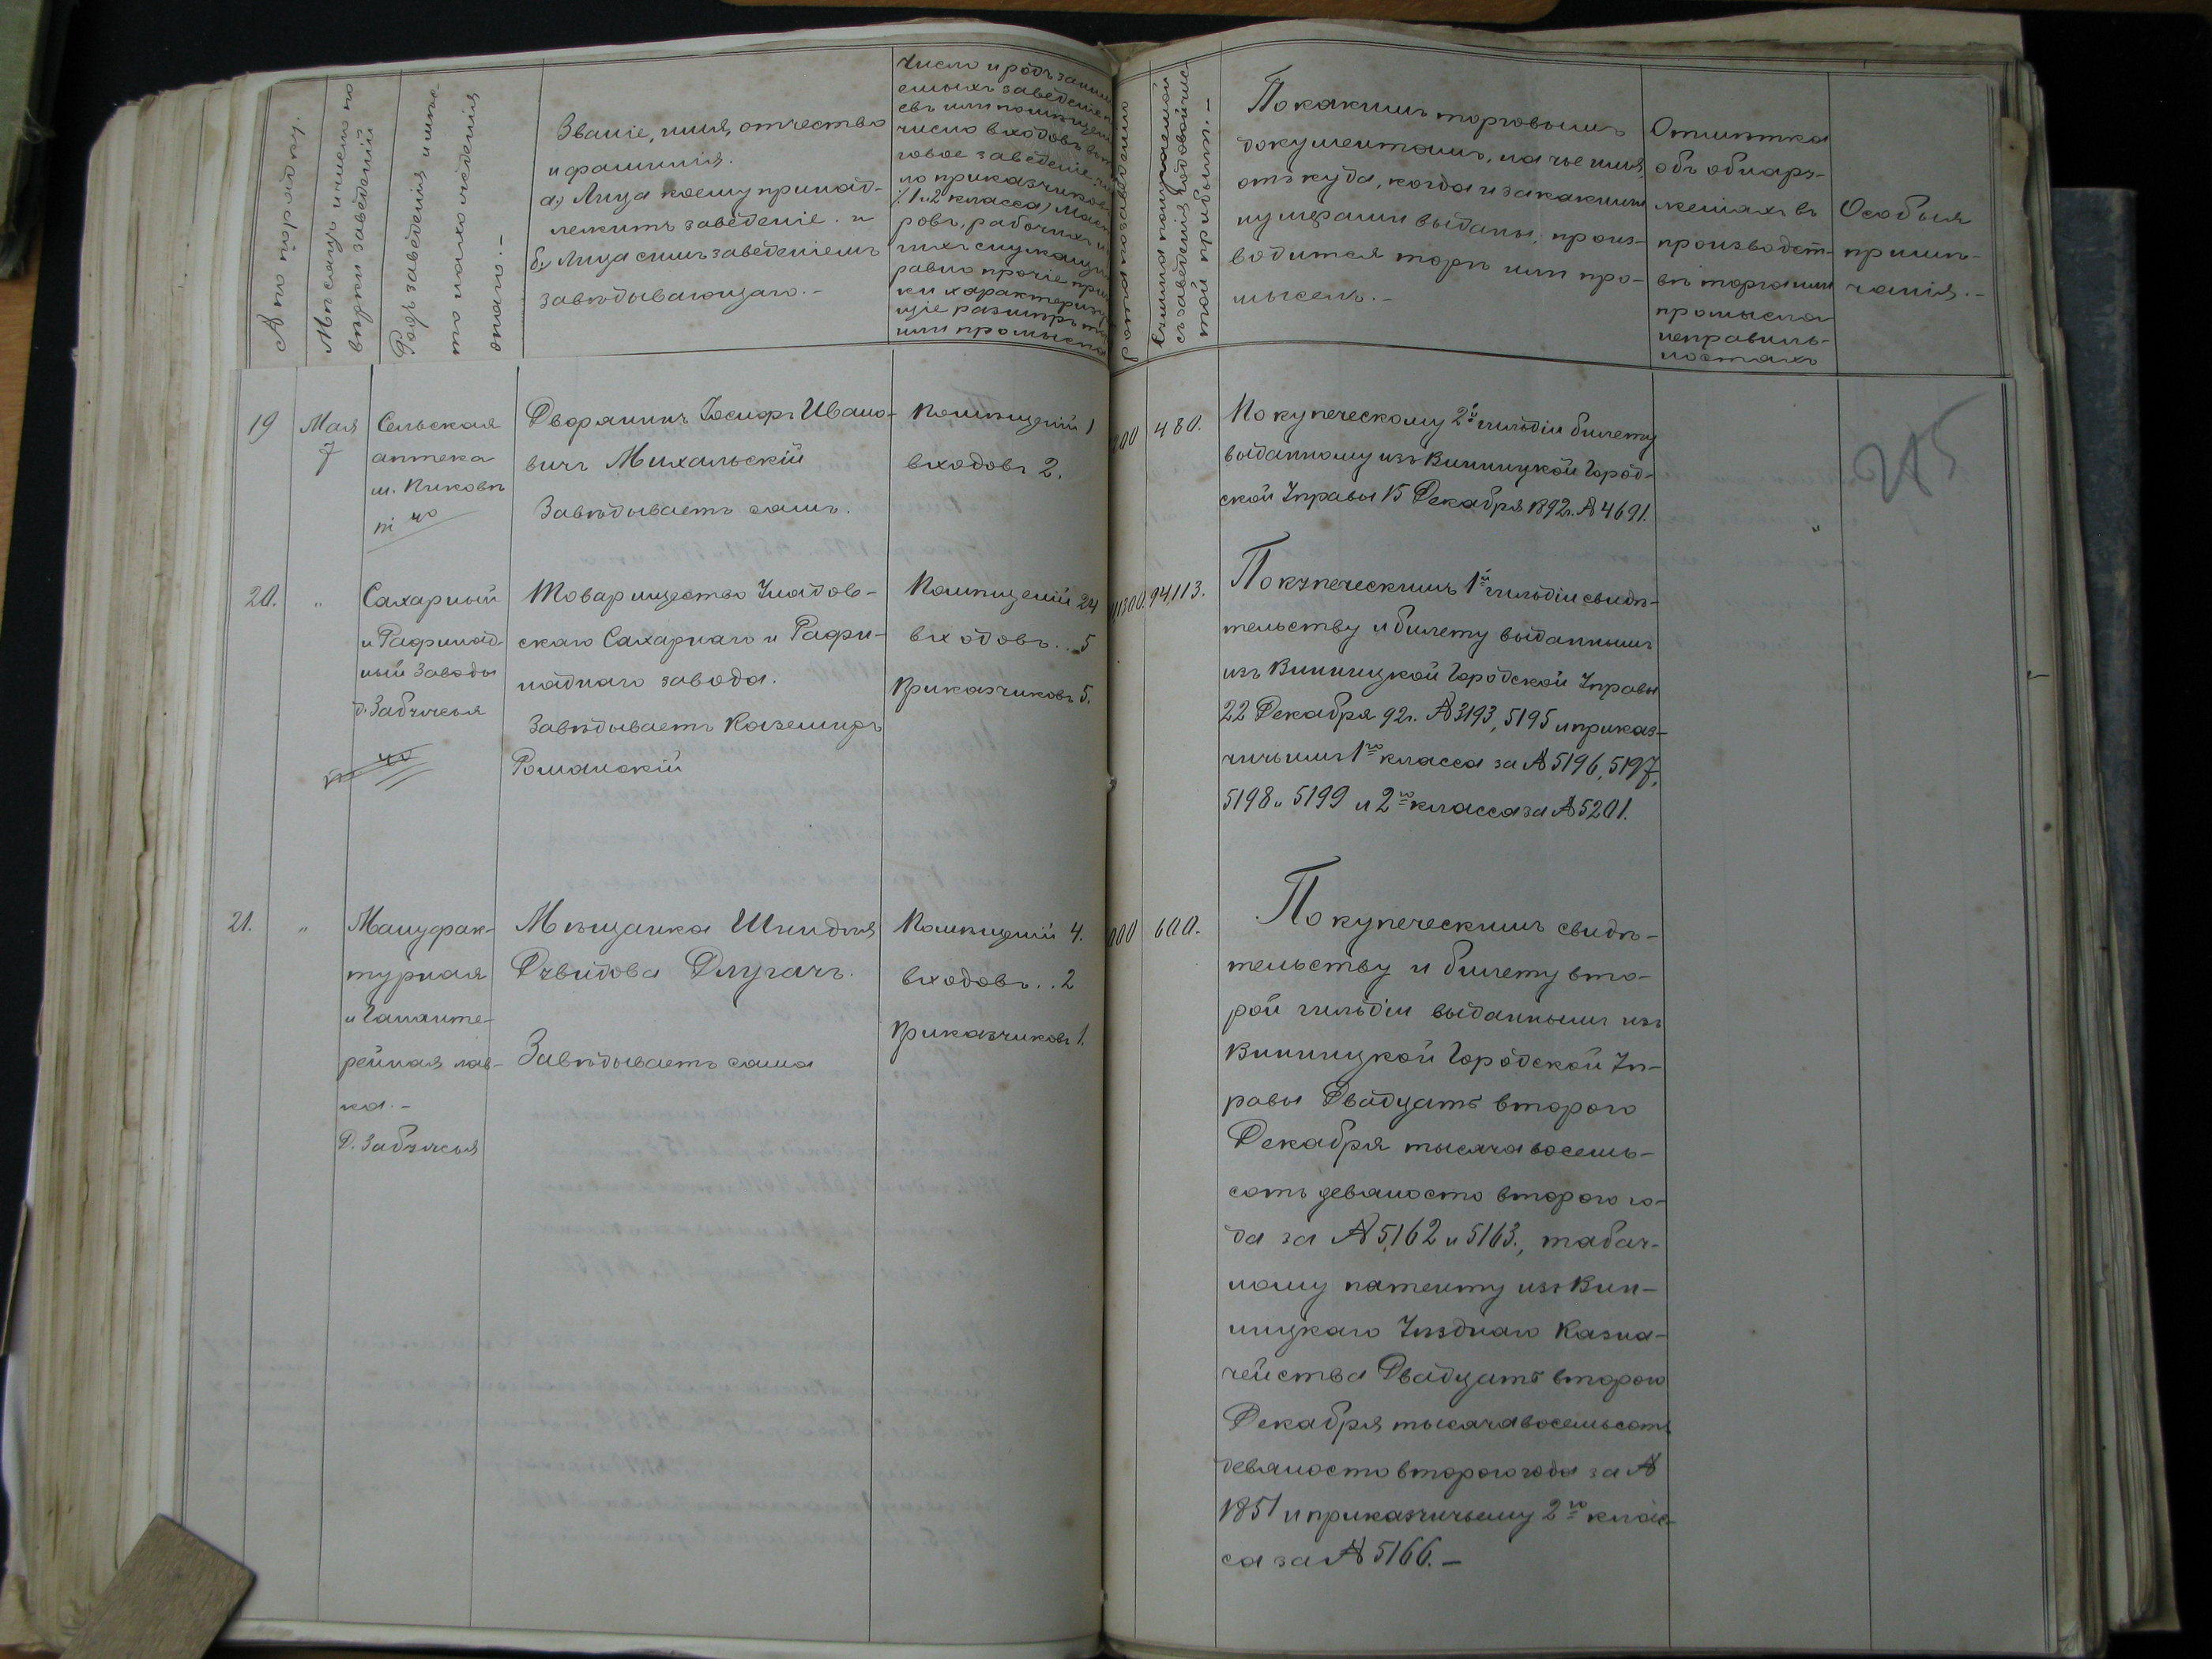 № по порядку.
Мѣсяцъ и число по
вѣрки заведеній
Родъ заведенія и мѣс-
то нахожденія
онаго.-
Званіе, имя, отчество
и фамилія.
а) Лица коему принад-
лежитъ заведеніе. и
б.) Лица симъ заведеніемъ
завѣдывающаго.-
Число и родъ
заведеніе
число входовъ
говое заведеніе
ло приказчиковъ
/1 и 2 класса)
ровъ, рабочихъ и
равно прочіе
ки
щіе размѣръ
или промысла
съ заведенія годовой чис-
той прибыли.-
По какимъ торговымъ
документамъ, на чье имя,
откуда, когда и за какими
нумерами выданы, произ-
водится торгъ или про-
мыселъ.-
Отмѣтка
объ обнару-
женіяхъ въ
производст-
вѣ торга или
промысла
неправиль-
ностяхъ
Особыя
примѣ-
чанія.-
19
Мая
7
Сельская
аптека
м. Пиковъ
Дворянинъ Іосифъ Ивано-
вичъ Михальскій
Завѣдываетъ самъ.
Помѣщеній 1
входовъ 2.
480.
По купеческому 2й гильдіи билету
выданному изъ Винницкой Город-
ской Управы 15 Декабря 1892г. № 4691.
"
215
20. "
Сахарный
и Рафинад
ный заводы
д. Забужья
Товарищество Уладов-
скаго Сахарнаго и Рафи-
наднаго завода.
Завѣдываетъ Каземиръ
Романскій
Помѣщеній 24
входовъ.. 5
Приказчиковъ 5.
94,113.
По купеческимъ 1й гильдіи свидѣ-
тельству и билету выданнымъ
изъ Винницкой Городской Управы
22 Декабря 92г. № 3193, 5195 и приказ-
чичьимъ 1го класса за № 5196, 5197,
5198 и 5199 и 2го класса за № 5201.
21. "
Мануфак-
турная
и Галанте-
рейная лав-
ка.-
Д. Забужья
Мѣщанка Шпидля
Дувидова Длугачъ.
Завѣдываетъ сама
Помѣщеній 4.
входовъ.. 2
Приказчиковъ 1.
600.
По купеческимъ свидѣ-
тельству и билету вто-
рой гильдіи выданнымъ изъ
Винницкой Городской Уп-
равы Двадцать второго
Декабря тысяча восемь-
сотъ девяносто второго го-
да за № 5162 и 5163., табач-
ному патенту изъ Вин-
ницкаго Уѣзднаго Казна-
чейства Двадцать второго
Декабря тысяча восемьсотъ
девяносто второго года за №
1851 и приказчичьему 2го клас-
са за № 5166.-